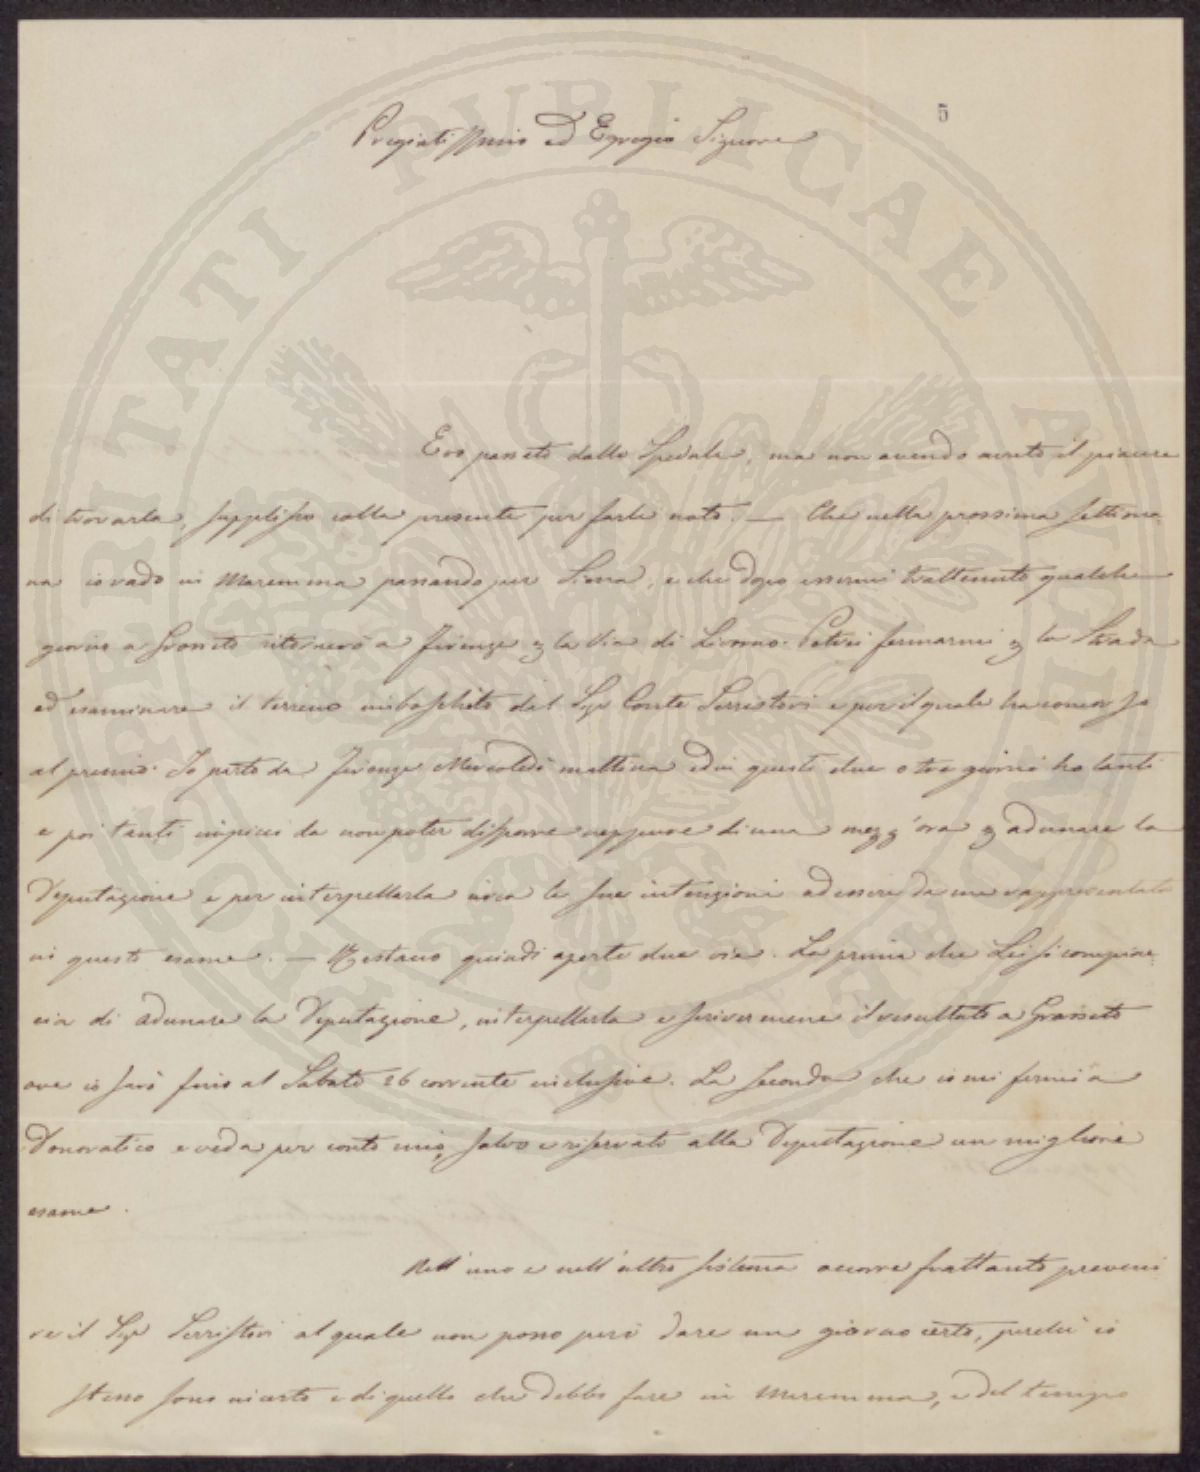 5
Pregiatissimo ed Egregio Signore
Ero passato dallo Spedale, ma non avendo avuto il piacere
di trovarla, supplisco colla presente per farle noto. — Che nella prossima settima
na io vado in Maremma passando per Siena, e che dopo essermi trattenuto qualche
giorno a Grosseto ritornerò a Firenze p la Via di Livorno. Potrei fermarmi p la Strada
ed esaminare il terreno imboschito dal Sigr Conte Serristori e per il quale ha concorso
al premio. Io parto da Firenze Mercoledì mattina ed in questi due o tre giorni ho tanti
e poi tanti impicci da non poter disporre neppure di una mezz'ora p adunare la
Deputazione e per interpellarla circa le sue intenzioni ad essere da me rappresentata
in questo esame. — Restano quindi aperte due vie. La prima che Lei si compiac
cia di adunare la Deputazione, interpellarla e scrivermene il resultato a Grosseto
ove io sarò fino al Sabato 26 corrente inclusive. La seconda che io mi fermi a
Donoratico e veda per conto mio, salvo e riservato alla Deputazione un migliore
esame.
Nell'uno e nell'altro sistema occorre frattanto preveni
re il Sigr Serristori al quale non posso però dare un giorno certo, perchè io
stesso sono incerto e di quello che debbo fare in Maremma, e del tempo
PROSPERITATI PUBLICAE AUGENDAE